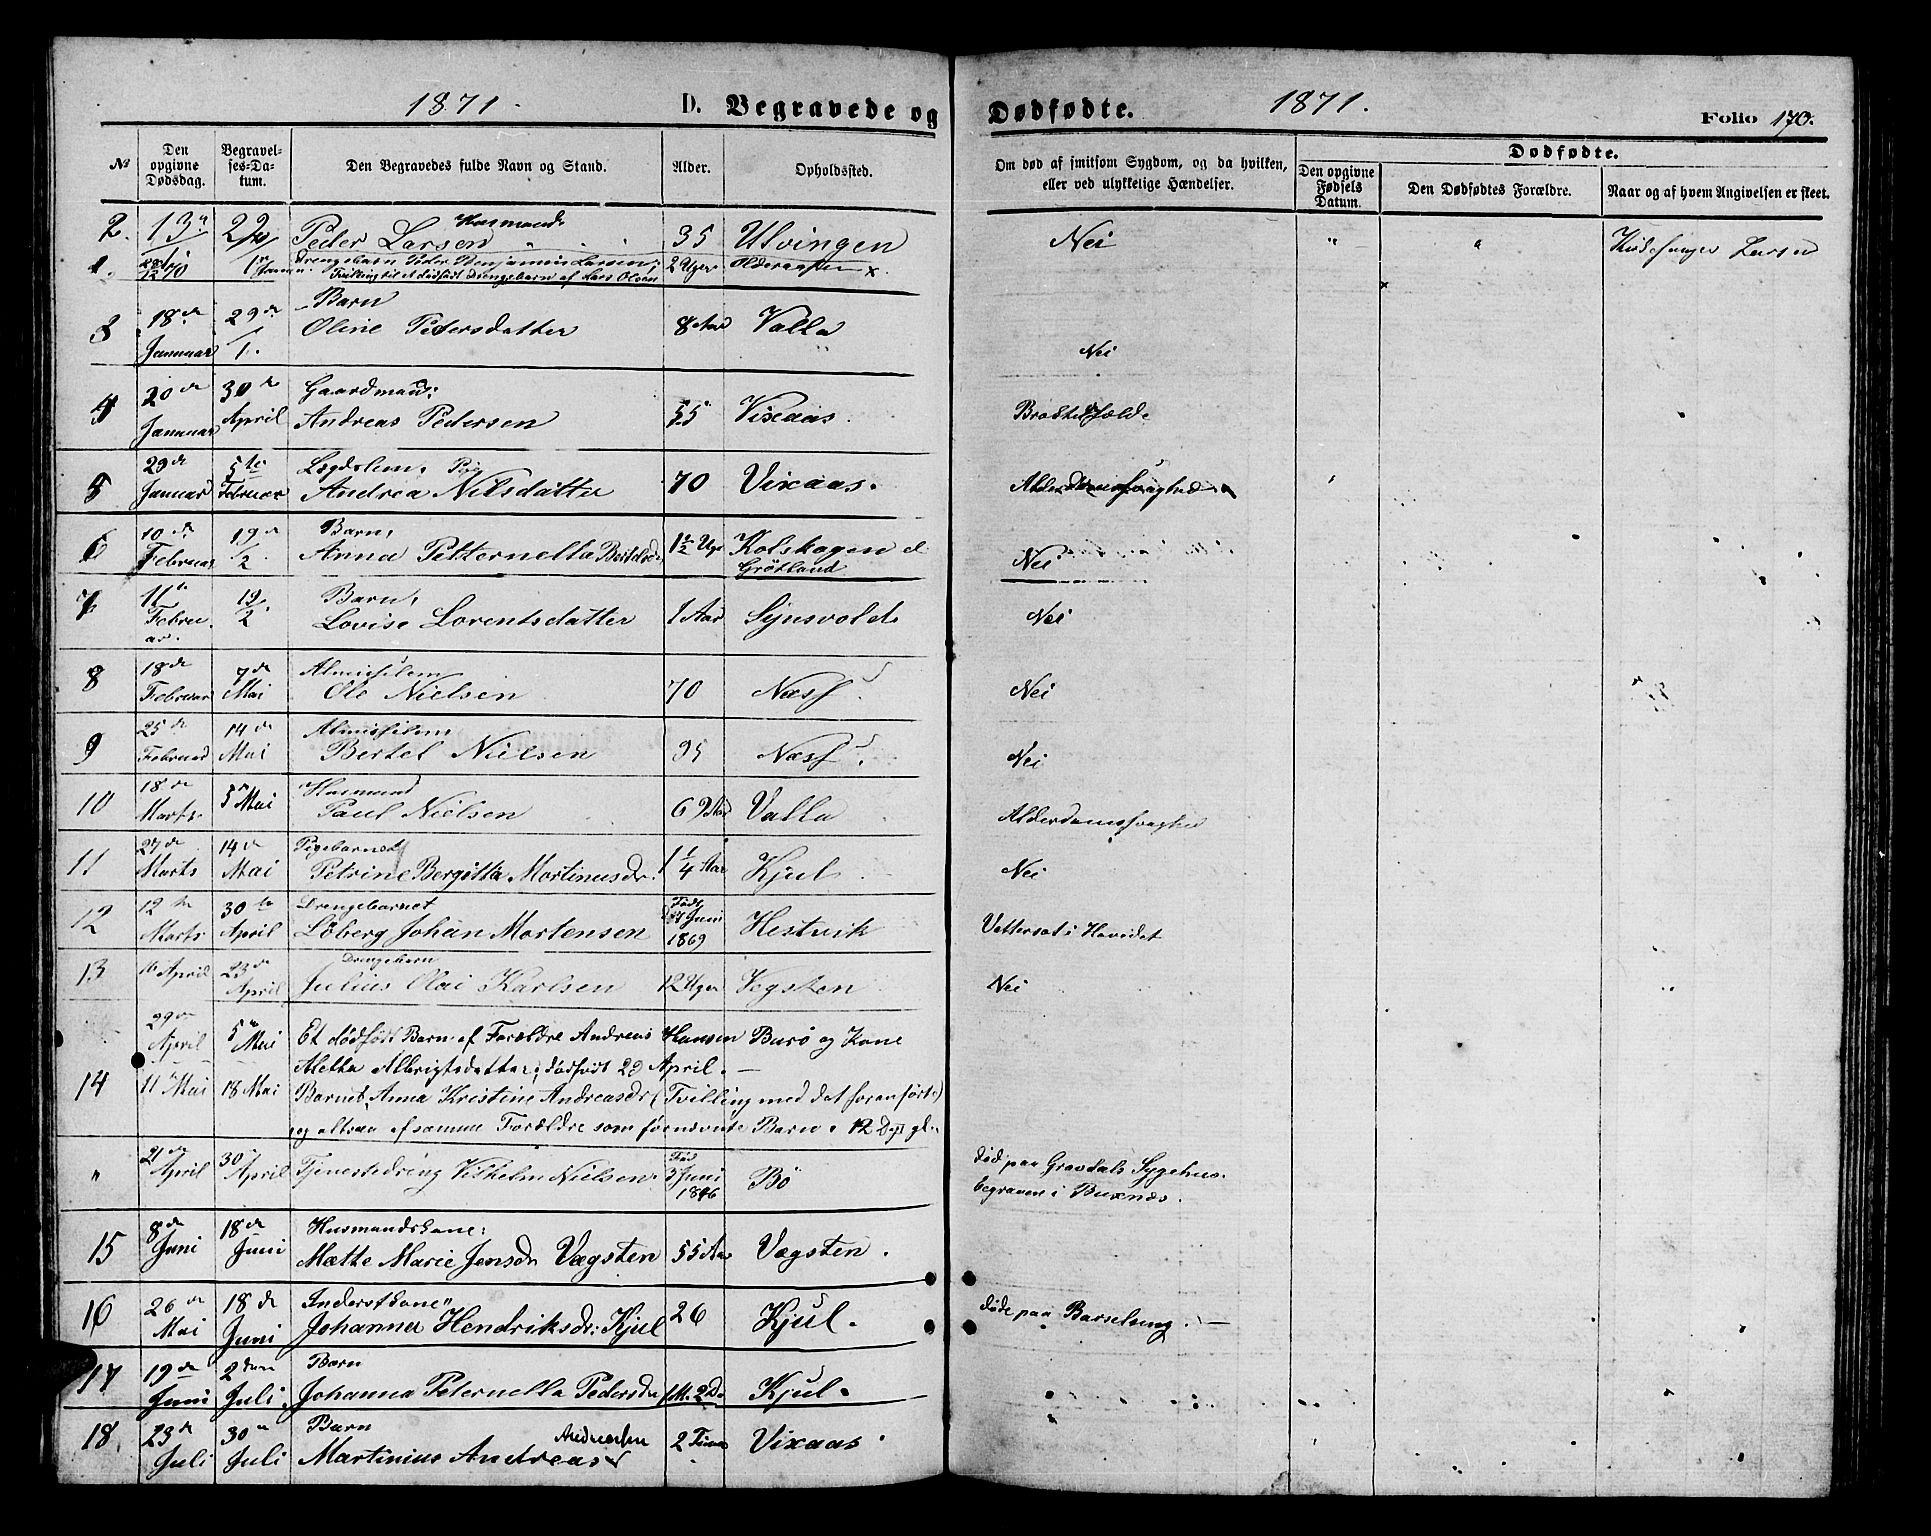 1871. D. Begravede og Dødfødte. 1871. Folio 170.
№ Den opgivne Dødsdag. Begravelses-Datum. Den Begravedes fulde Navn og Stand. Alder. Opholdssted. Om død af smitsom Sygdom, og da hvilken, eller ved ulykkelige Hændelser. Dødfødte. Den opgivne Fødsels Datum. Den Dødfødtes Forældre. Naar og af hvem Angivelsen er skeet.
Husmand
2. 13 22/2 Peder Larsen 35 Ulvingen Nei " " Larsen
1. 28/12 70 1 Januar Drengebarn Peder Benjamin Larsen, 2 Uger x.
Tvilling til et dødfødt Drengebarn af Lars Olsen
Barn
3 18de Januar 29de 1. Oline Pedersdatter 8 Aar Valla Nei
Gaardmand:
4 20de Januar 30te April Andreas Pedersen 55 Vixaas. Brøstsyge
Lægdslem, Pige
5 29de Januar 5te Februar Andrea Nilsdatter 70 Vixaas. Alderdomssvaghed
Barn,
6 10de Februar 19de /2 Anna Petternella 1 1/2 Uge Kolskogen
Grøtland Nei
Barn,
7 11te Februar. 19/2 Lovise Lorentsdatter 1 Aar Nei
Almisselem
8 18de Februar 7de Mai Ole Nielsen 70 Næss. Nei
Almisselem
9 25de Februar 14de Mai Bertel Nielsen 95 Næss. Nei
Husmand
10 18de Marts 5 Mai Paul Nielsen 69 Aar Valla Alderdomssvaghed
Pigebarnet
11 27de Marts 14de Mai Petrine Bergitta Martinusdr. 1 1/4 Aar Kjul Nei
Drengebarnet
12 12te Marts 30te April Löberg Johan Mortensen Født Juni 1869 Hestvik Vattersot i Hovedet
Drengebarn
13 16 April 23de April Julius Olai Karlsen 12 Uger Vegsten Nei
29de April 5 Mai Et dödfödt Barn af Forældre Andreas Hansen Burö og Kone
Aletta Albrigtsdatter; dødfødt 29 April.—
14 11 Mai 18 Mai Barnet Anna Kristine Andreasdr (Tvilling med det foranførte)
og altsaa af samme Forældre som foranførte Barn. 12 Dage gl.
" 21de April 30 April Tjenestedreng Vilhelm Nielsen Fød 3 Juni 1846 Bö død paa Gravdals Sygehus.
begraven i Buxnæs.
Husmandskone:
15 8de Juni 18de Juni Mætte Marie Jensdr Vægsten 55 Aar Vægsten.
Inderstkone"
16 26de Mai 18de Juni Johanna Hendriksdr: Kjul 26 Kjul. døde paa Barselseng.—
Barn
17 19de Juni 2den Juli. Johanna Peternella Pedersdr 1 M. 2 D. Kjul.
Barn Andreassen
18. 23de Juli 30te Juli Martinius Andreas 2 Timer Vixaas